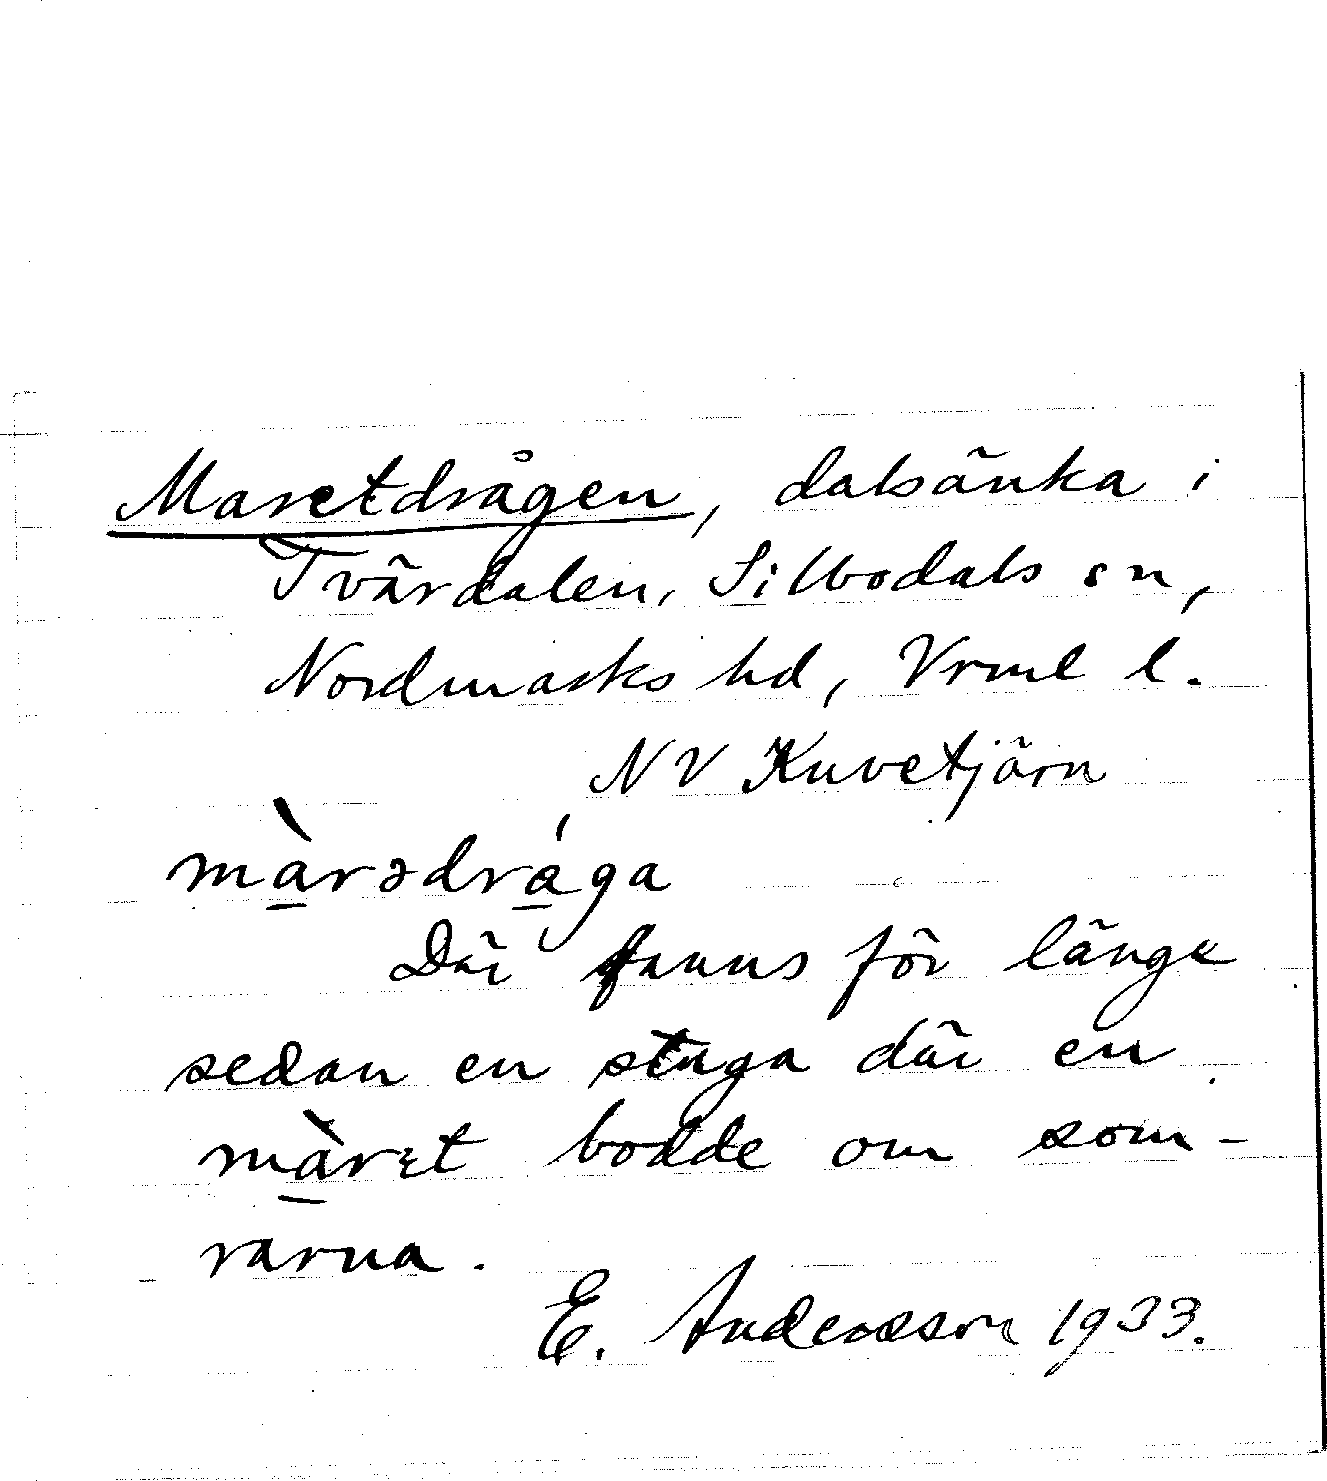 Maretdrågen, dalsänka i
Tvärdalen, Silbodals sn,
Nordmarks hd, Vrml l.
NV Kuvetjärn
màrədrága
Där fanns för länge
sedan en stuga där en
màret bodde om som-
rarna.
E. Andersson 1933.